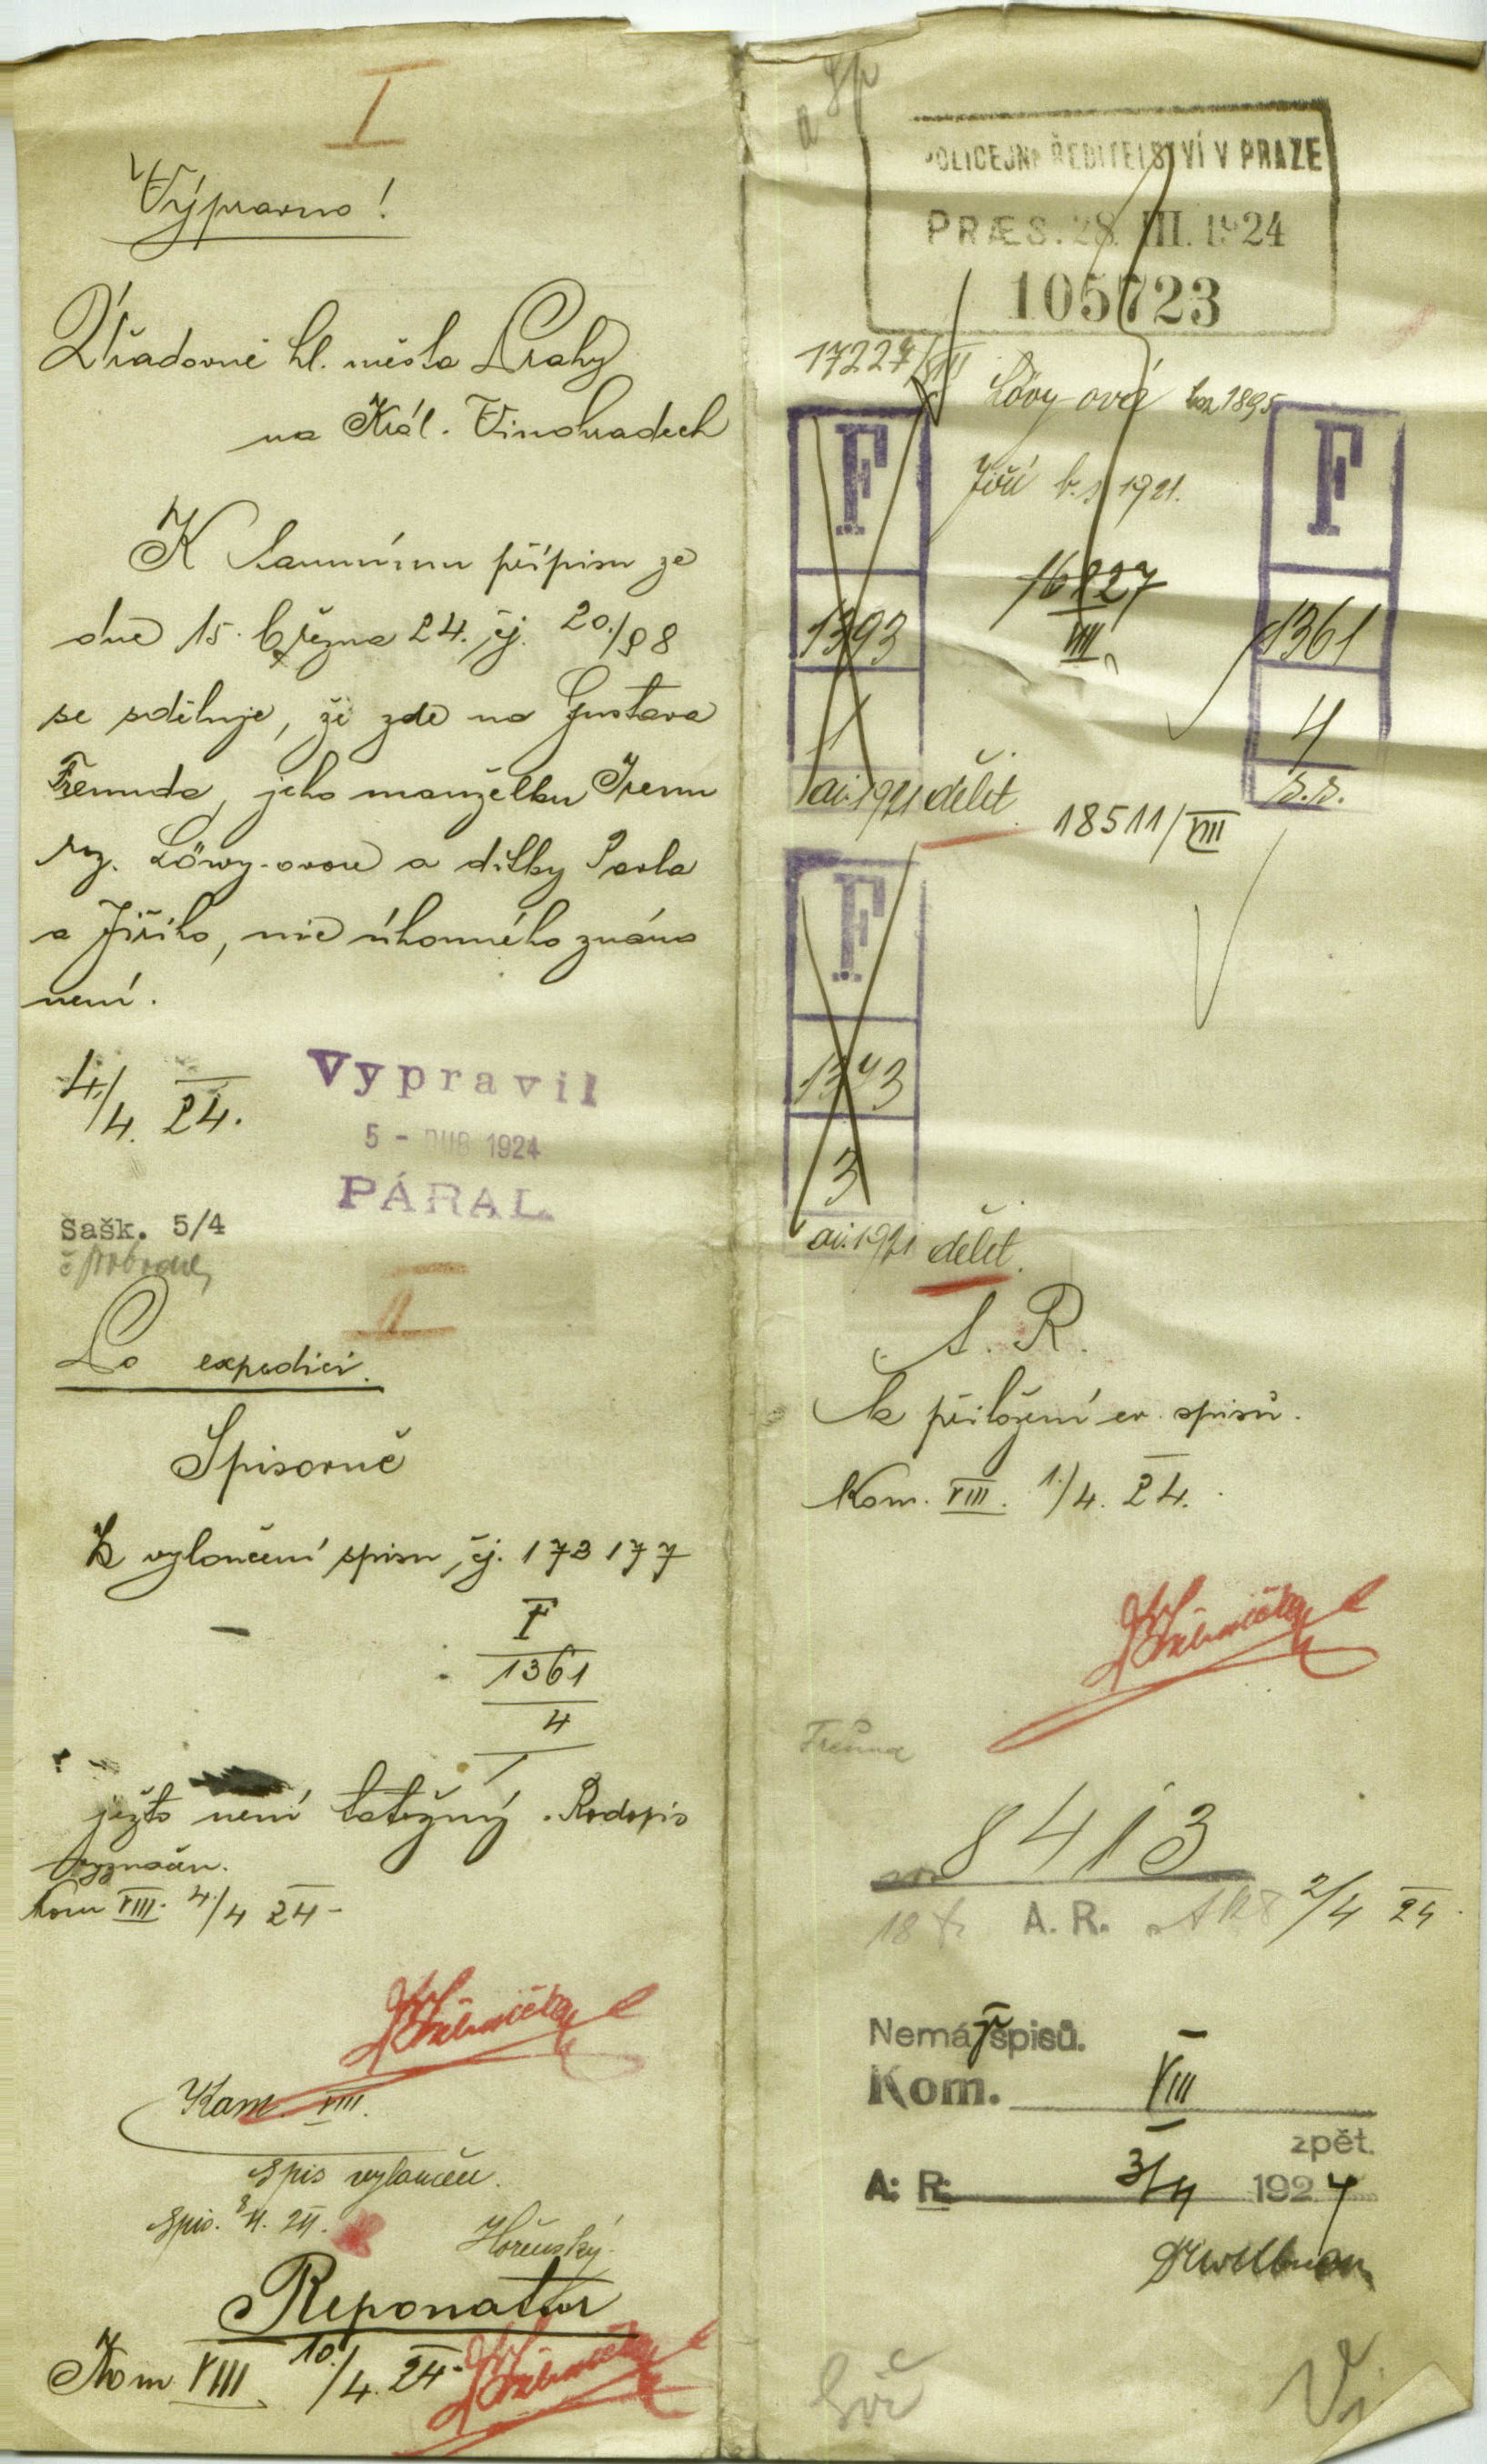 I
Výpravno!
Úřadovně hl. města Prahy
na Král. Vinohradech
K tamnímu přípisu ze
dne 15. března 24. čj. 20./98
se sděluje, že zde na Gustava
Freunda, jeho manželku Irenu
roz. Löwy-ovou a dítky Pavla
a Jiřího, nic úhonného známo
není.
4./4. 24.
Vypravil
5 - DUB 1924
PÁRAL
Šašk. 5/4
II
Po expedici.
Spisovně
k vyloučení spisu čj. 173177
F
1361
4
ježto není totožný. Rodopis
vyznačen.
Kom VIII. 4./4 24-
Kom. VIII.
Spis vyloučen.
Spis. 8/4. 24.
Hořenský
Reponatur
Kom VIII 10./4. 24-
POLICEJNÍ ŘEDITELSTVÍ V PRAZE
PRÆS. 28. III. 1924
105723
17227/VIII
Lövy-ová 1895
Jiří 1921.
F
1393
1
ai. 1921 dělit.
16827
VIII
F
1361
4
s.s.
18511/VIII
F
1343
3
ai. 1921 dělit.
A. R.
k přiložení ev. spisů.
Kom. VIII. 1./4. 24.
Freund
8413
A. R. 2/4 24.
Nemá spisů.
Kom. VIII
zpět.
A. R. 3/4 1924